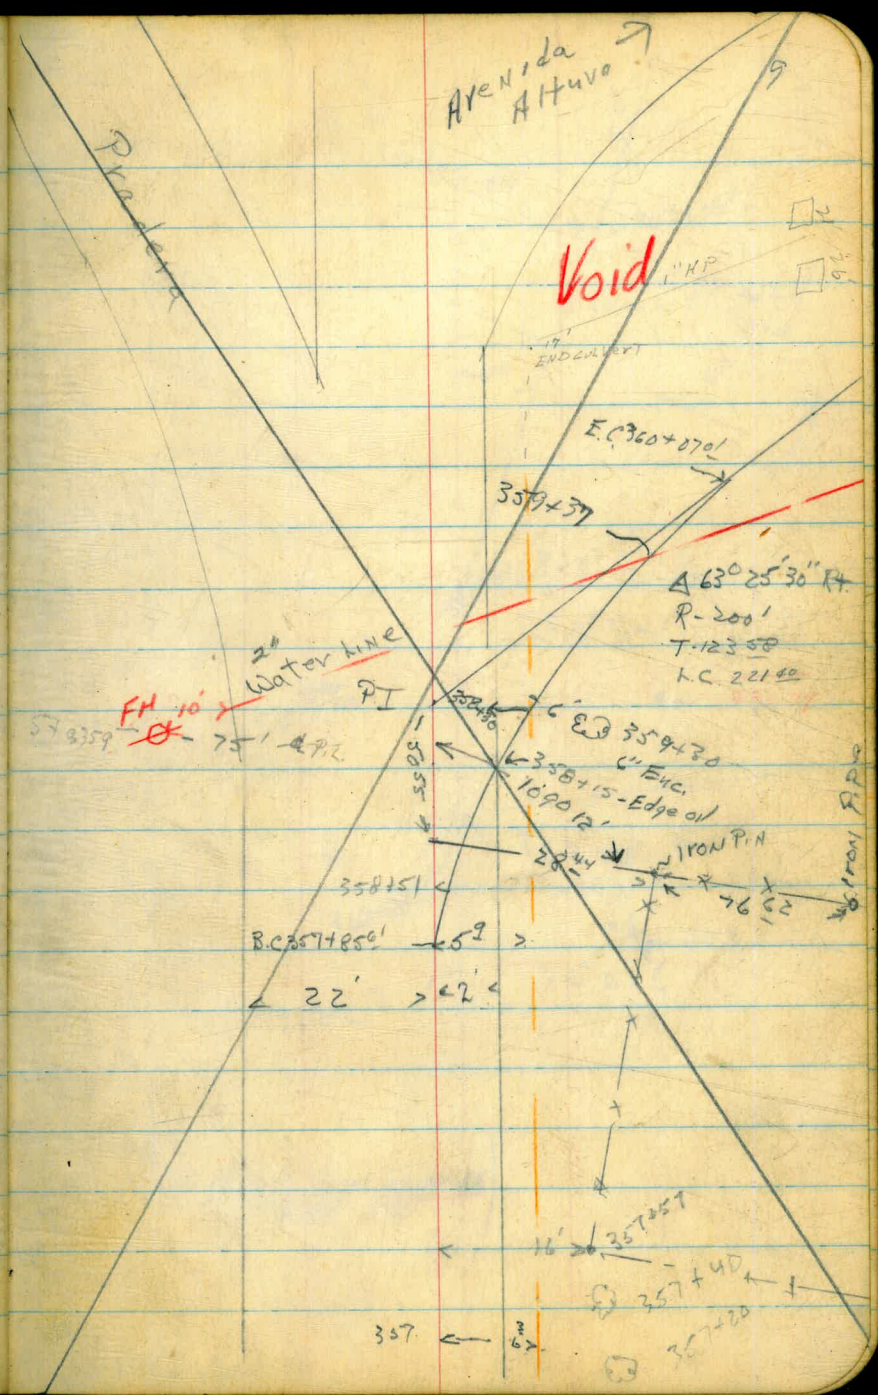 Avenida
Altuvo
Pradera
Void
1" HP
17'
END culvert
E.C. 360+070'
359+37
Δ 63° 25' 30" Rt.
R-200'
T-123 58
L.C. 221 40
2"
Water LINE
P.I
FH 10'
75'
6'
359+30
6" Euc.
358+15-Edge oil
12'
28 44
IRON PIN
76 62
IRON PIPE
358+51
B.C 357+850'
5 9
22'
2'
16'
357+57
357+40
357+20
357